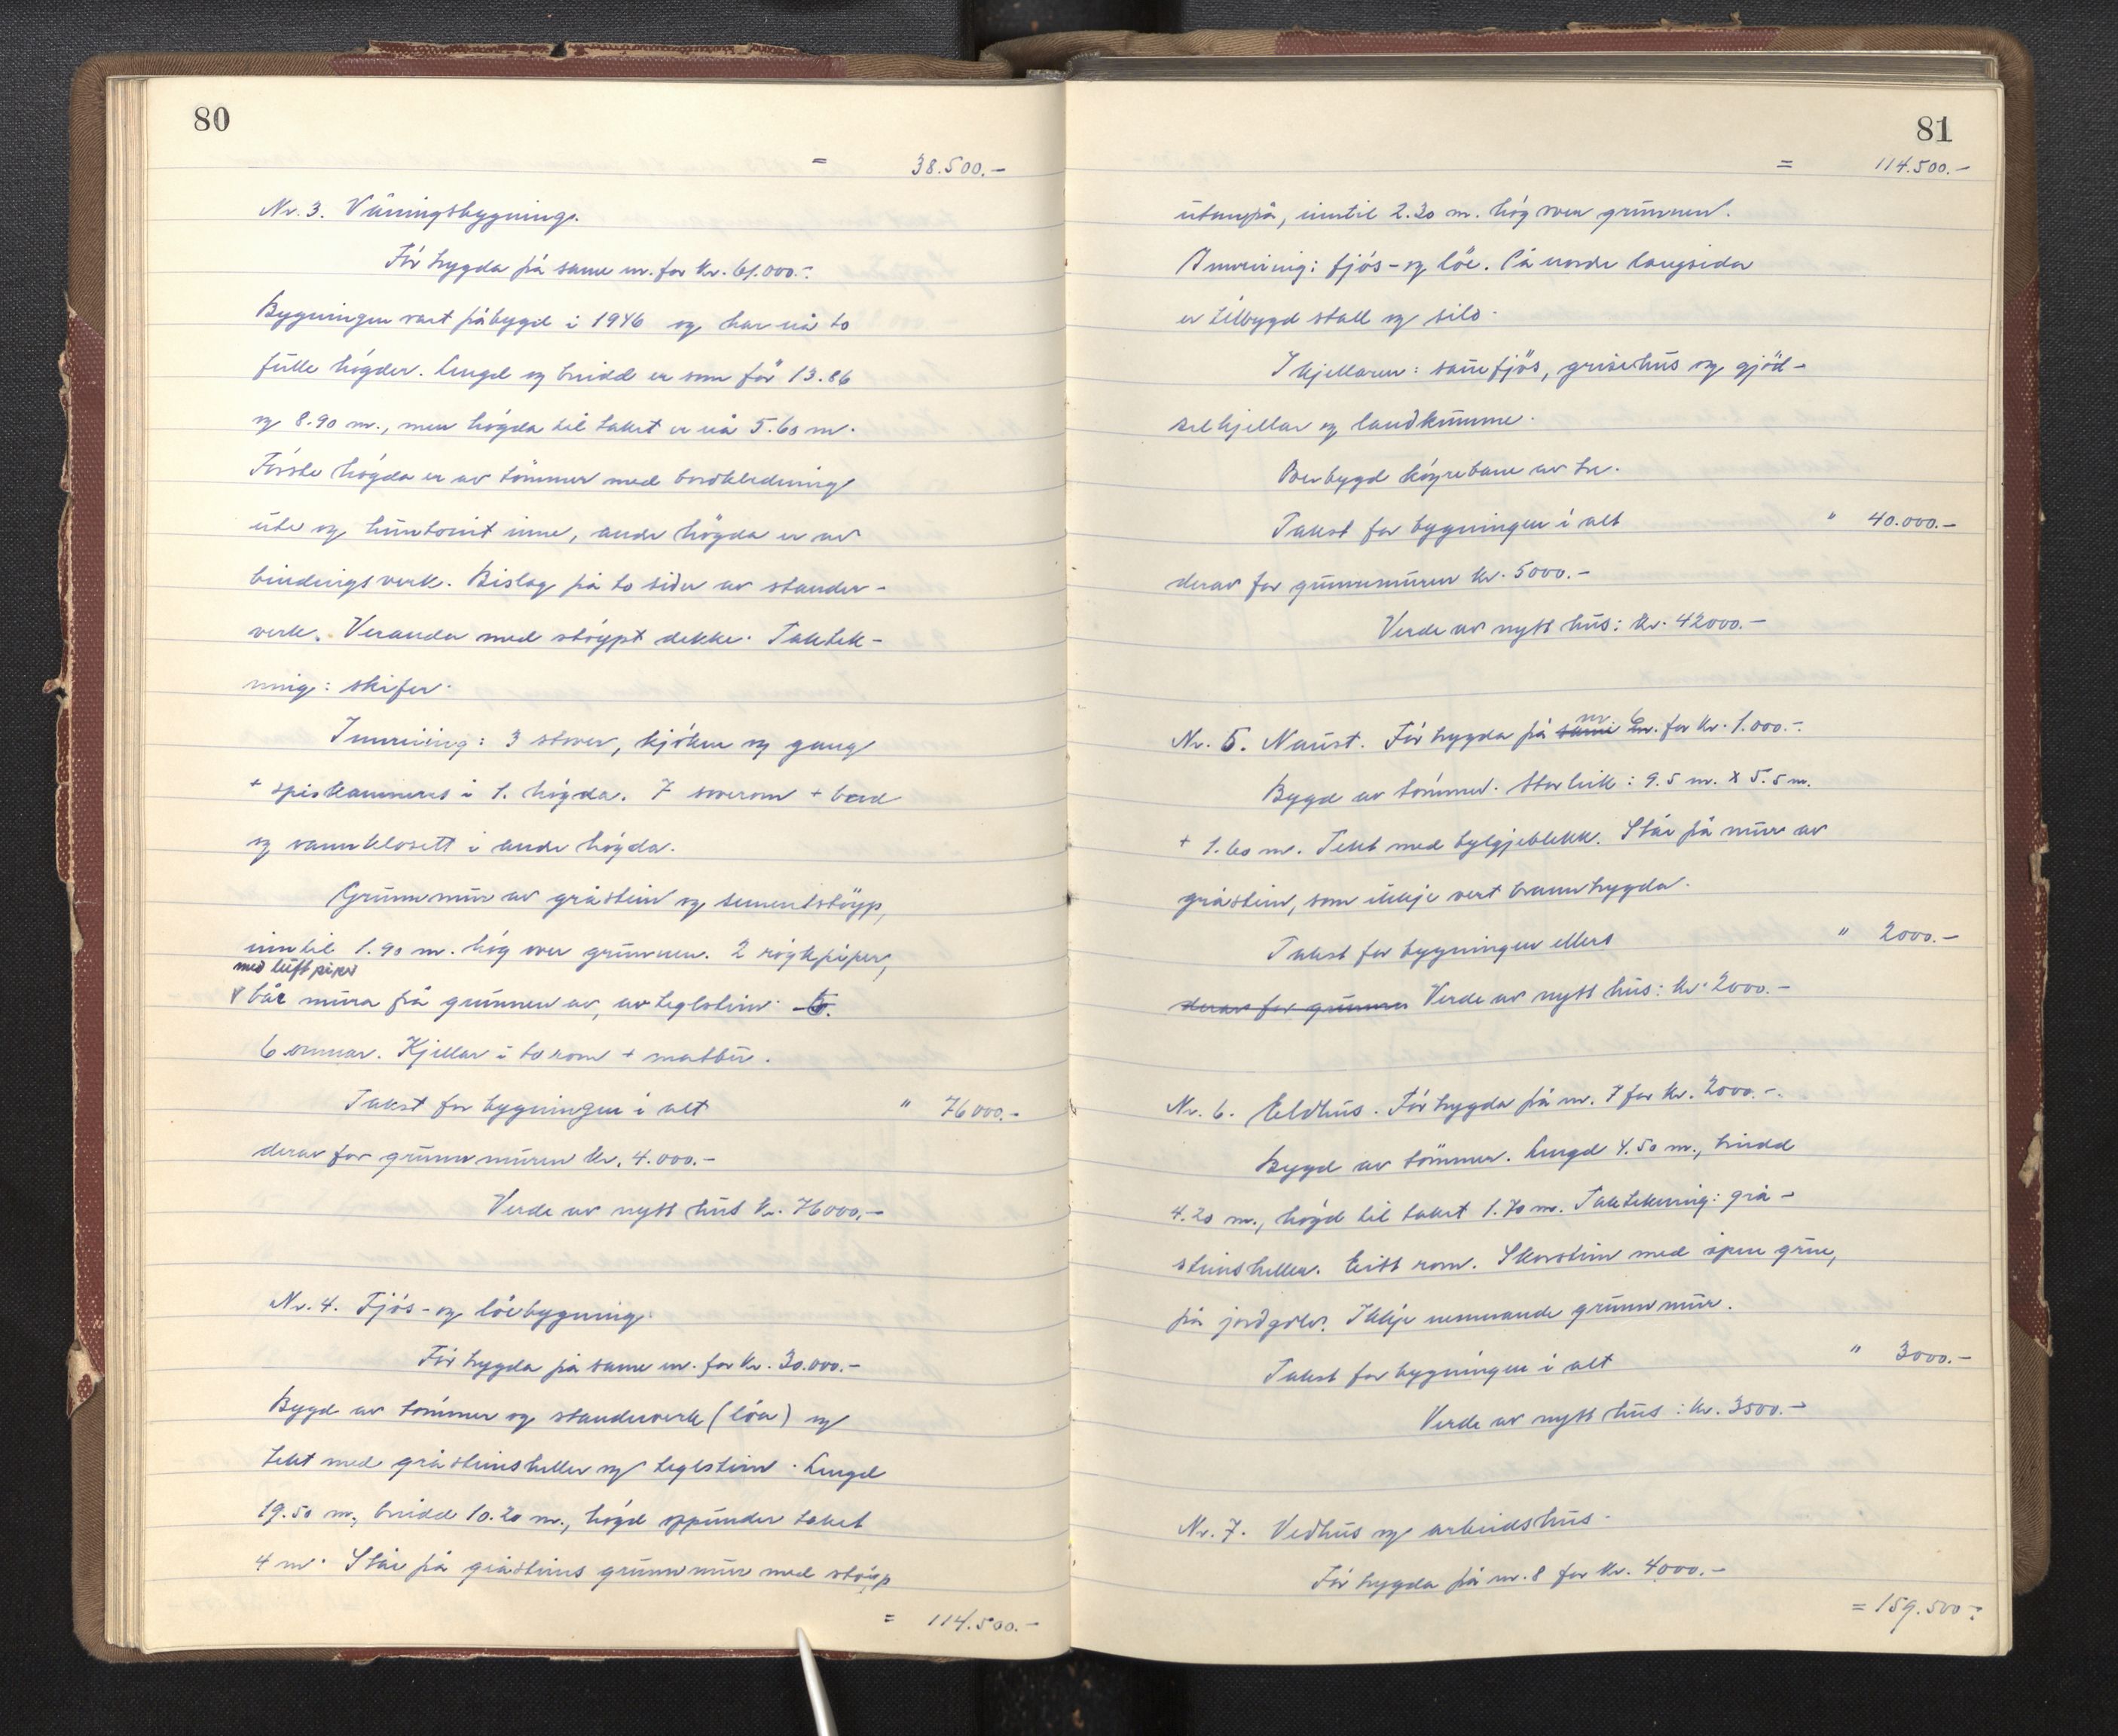 80
= 38.500.-
Nr. 3. Våningsbygning.
Før trygda på same nr. for kr. 61.000.-
Bygningen vart påbygd i 1946 og har nå to
fulle høgder. Lengd og breidd er som før 13.86
og 8.90 m., men høgda til taket er nå 5.60 m.
Første høgda er av tømmer med bordkledning
ute og huntonit inne, andre høgda er av
bindingsverk. Bislag på to sider av stander-
verk. Veranda med støypt dekke. Taktek-
ning: skifer.
Innreiing: 3 stover, kjøken og gang
+ spiskammers i 1. høgda. 7 soverom + bad
og vannklosett i andre høgda.
Grunnmur av gråstein og sementstøyp,
inntil 1.90 m. høg over grunnen. 2 røykpiper,
med luftpiper
båe mura frå grunnen av, av teglstein.
6 omnar. Kjellar i to rom + matbu.
Takst for bygningen i alt " 76000.-
derav for grunnmuren kr. 4.000.-
Verde av nytt hus kr. 76000.-
Nr. 4. Fjøs- og løebygning.
Før trygda på same nr. for kr. 30.000.-
Bygd av tømmer og standerverk (løa) og
tekt med gråsteinsheller og teglstein. Lengd
19.50 m., breidd 10.20 m., høgd oppunder taket
4 m. Står på gråsteins grunnmur med støyp
= 114.500.-
81
= 114.500.-
utanpå, inntil 2.20 m. høg over grunnen.
Innreiing: fjøs- og løe. På nordre langsida
er tilbygd stall og silo.
I kjellaren: sauefjøs, grisehus og gjød-
selkjellar og landkumme.
Overbygd køyrebane av tre.
Takst for bygningen i alt " 40.000.-
derav for grunnmuren kr. 5000.-
Verde av nytt hus: kr. 42000.-
nr. 6
Nr. 5. Naust. Før trygda på same nr. for kr. 1.000.-
Bygd av tømmer. Storleik: 9.5 m. x 5.5 m.
+ 1.60 m. Tekt med bylgjeblekk. Står på mur av
gråstein, som ikkje vert branntrygda.
Takst for bygningen ellers " 2000.-
derav for grunnen Verde av nytt hus: kr. 2000.-
Nr. 6. Eldhus. Før trygda på nr. 7 for kr. 2000.-
Bygd av tømmer. Lengd 4.50 m., breidd
4.20 m., høgd til taket 1.70 m. Taktekning: grå-
steinsheller. Eitt rom. Skorstein med open grue,
på jordgolv. Ikkje nemnande grunnmur.
Takst for bygningen i alt " 3000.-
Verde av nytt hus: kr. 3500.-
Nr. 7. Vedhus og arbeidshus.
Før trygda på nr. 8 for kr. 4000.-
= 159.500.-